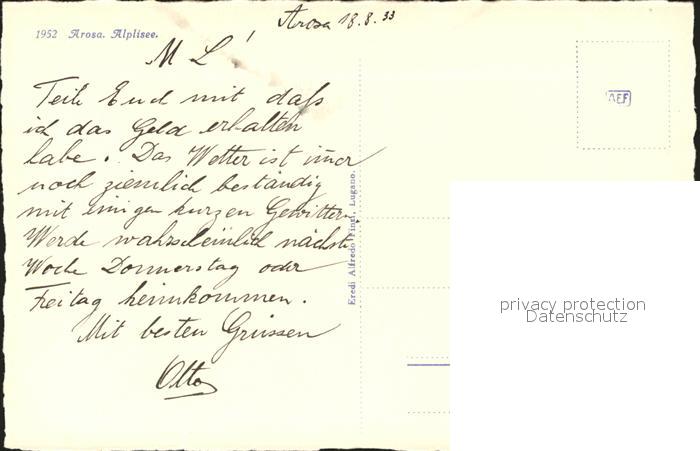 1952 Arosa. Alplisee.
Arosa 18.8.33
M L!
Teile Euch mit daß
ich das Geld erhalten
habe. Das Wetter ist imer
noch ziemlich beständig
mit einigen kurzen Gewittern.
Werde wahrscheinlich nächste
Woche Donnerstag oder
Freitag heimkommen.
Mit besten Grüssen
Otto
Eredi Alfredo Finzi, Lugano.
AEF
privacy protection
Datenschutz